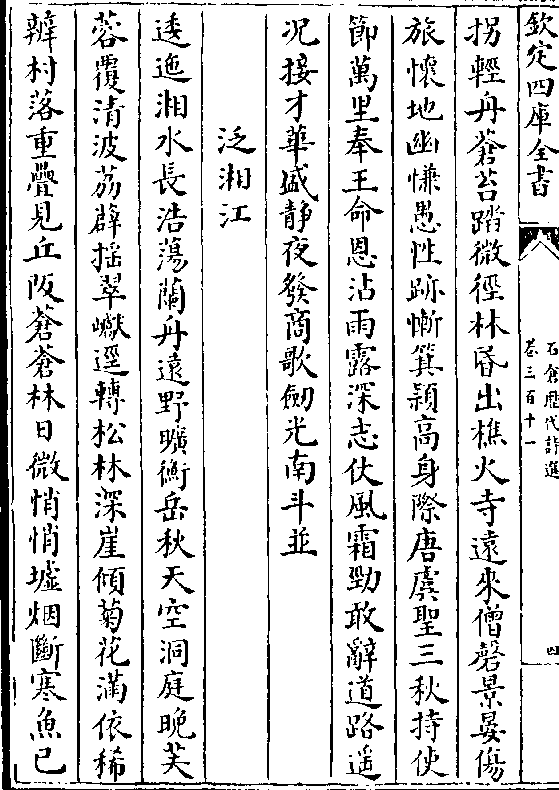 欽定四庫全書
石倉歷代詩選
卷三百十一
四
拐輕舟蒼苔踏微徑林昏出樵火寺遠來僧磬景晏傷
旅懷地幽慊愚性跡慚箕潁高身際唐虞聖三秋持使
節萬里奉王命恩沾雨露深志仗風霜勁敢辭道路遥
况接才華盛静夜發商歌劒光南斗並
泛湘江
逶迤湘水長浩蕩蘭舟遠野曠衡岳秋天空洞庭晚芙
蓉覆清波荔薜摇翠巘逕轉松林深崖傾菊花滿依稀
辨村落重疊見丘阪蒼蒼林日微悄悄墟烟斷寒魚已